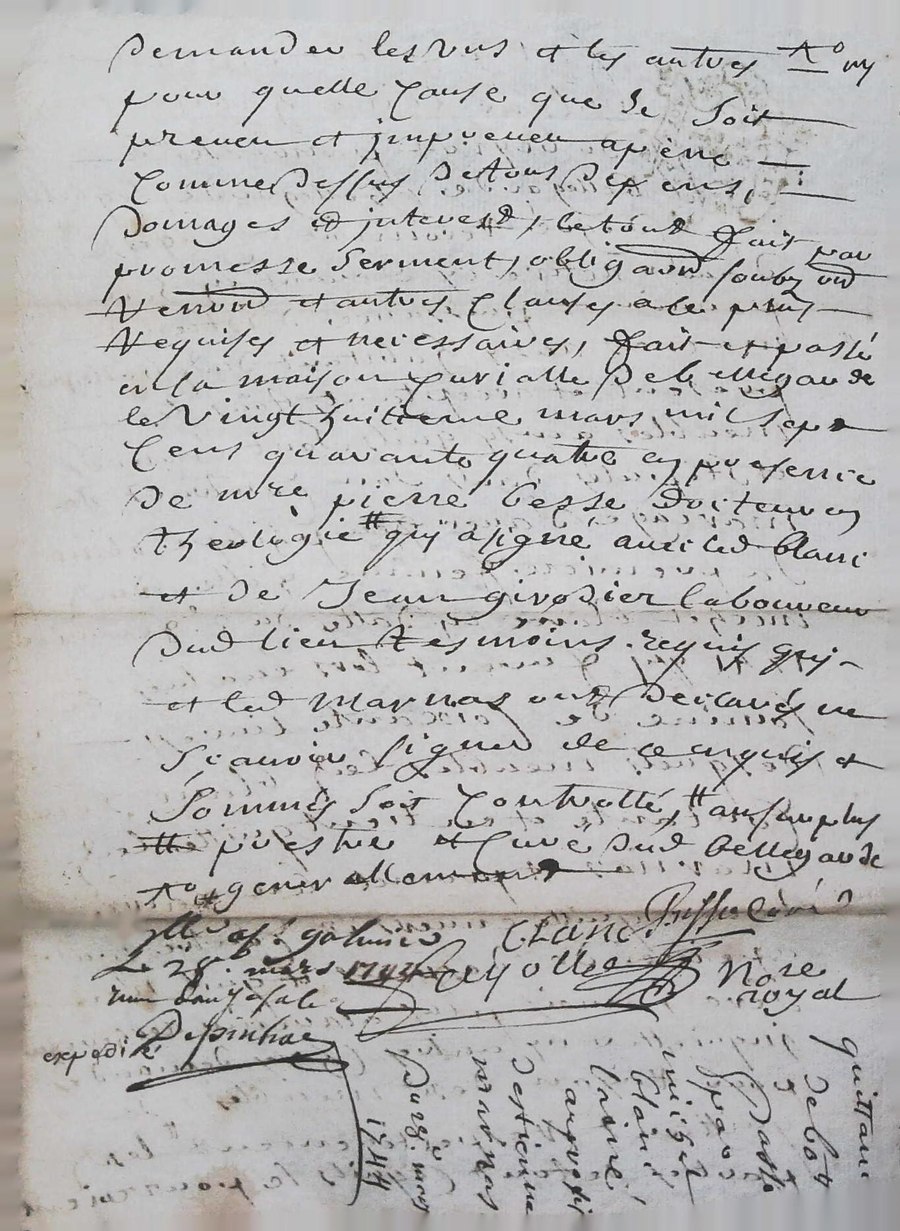 demander les uns et les autres Ao ny
pour quelle cause que se soit
preveu et jmpreveu a peine
comme dessus de tous depens,
domages et jnterests, le tout fait par
promesse serment, obligaon soubzmon
renon et autres clauses a ce plus
requises et necessaires, fait et passé
en la maison curialle de bellegarde
le vingt huitieme mars mil sept
cens quarante quatre en presence
de mre pierre besse docteur en
theologie # qui a signe avec led blanc
et de Jean girodier laboureur
dud lieu tesmoins requis qui
et led marnas ont declarés ne
scavoir signer de ce enquis et
sommés soit controllé, # au surplus
# prestre et curé dud bellegarde
Ao # generallement
CLANC Besse Curé
le 28e mars 1744
Reyolle Nore
royal
expedié
quittance
de lods
passé
par
blanc
l'ainé
au profit
d'estienne
marnas
du 28e mars
1744